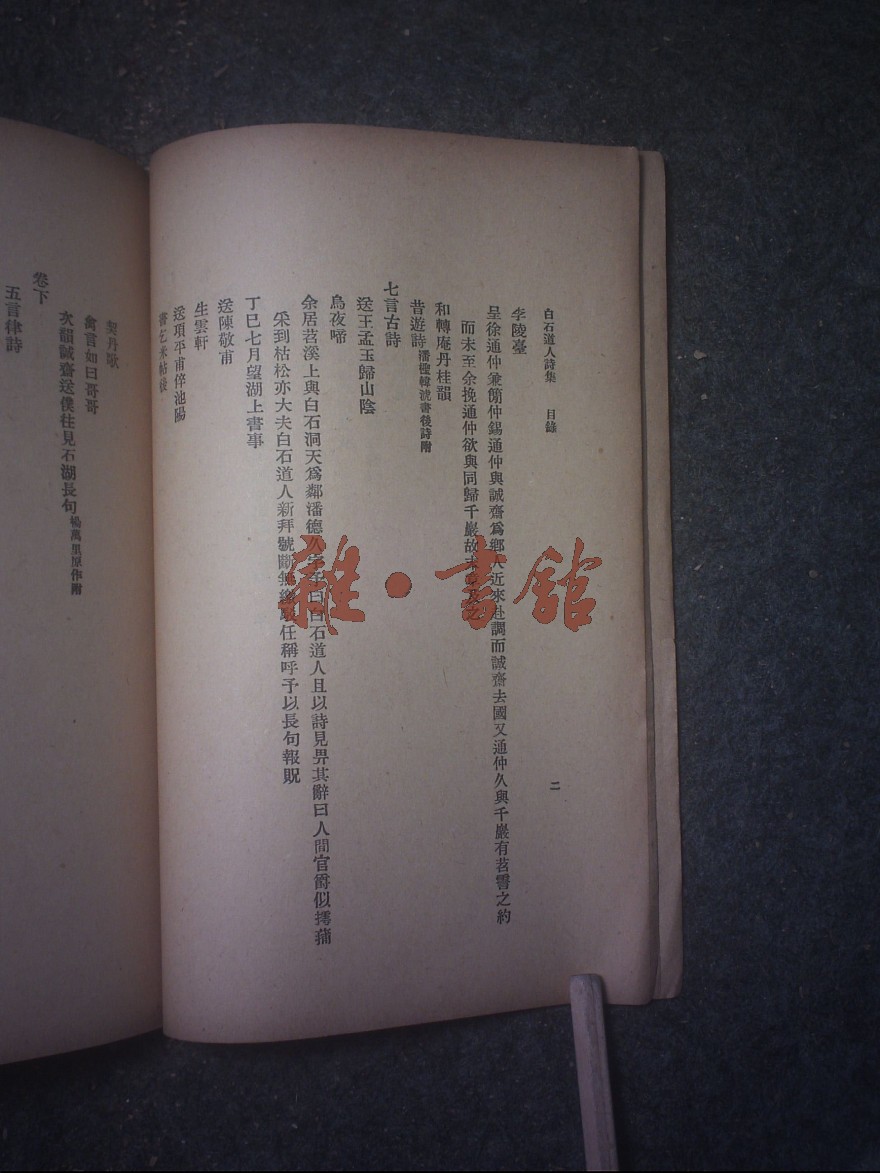 白石道人詩集　目錄　二
李陵臺
呈徐通仲兼簡仲錫通仲與誠齋爲鄉人近來赴調而誠齋去國又通仲久與千巖有苕霅之約
而未至余挽通仲欲與同歸千巖故末章及之
和轉庵丹桂韻
昔遊詩潘檉韓淲書後詩附
七言古詩
送王孟玉歸山陰
烏夜啼
余居苕溪上與白石洞天爲鄰潘德久字予曰白石道人且以詩見畀其辭曰人間官爵似摴蒱
采到枯松亦大夫白石道人新拜號斷無繳駁任稱呼予以長句報貺
丁巳七月望湖上書事
送陳敬甫
生雲軒
送項平甫倅池陽
書乞米帖後
契丹歌
禽言如曰哥哥
次韻誠齋送僕往見石湖長句楊萬里原作附
卷下
五言律詩
雜·書館